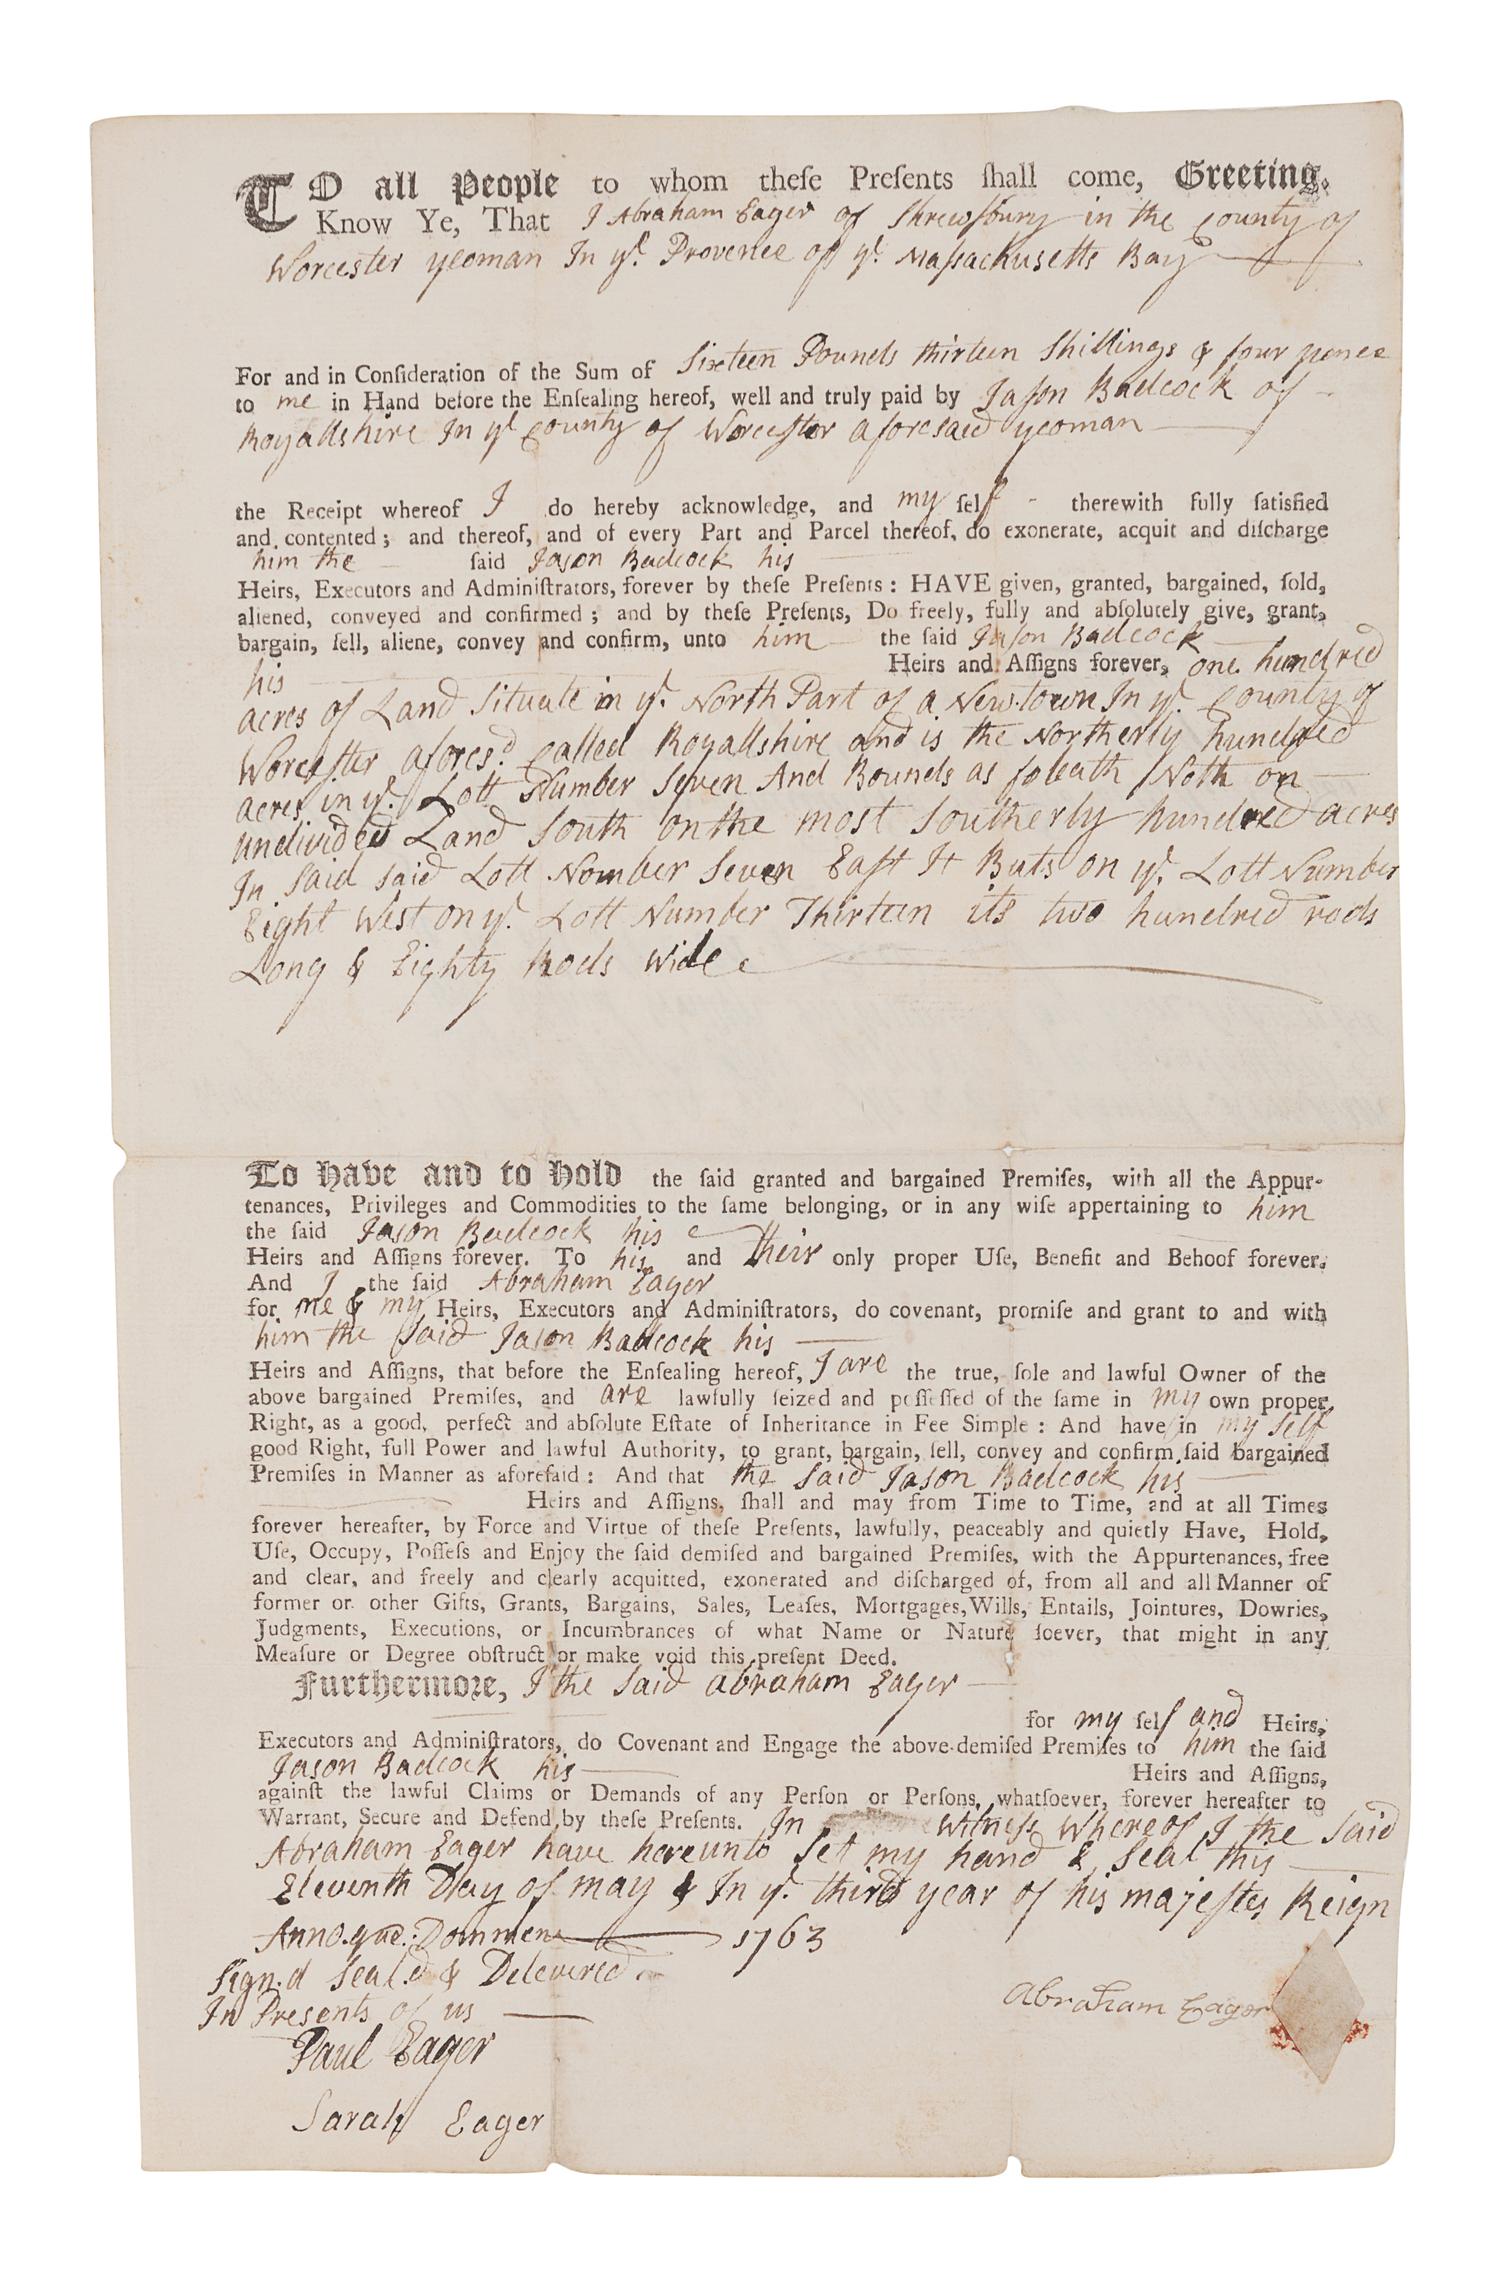 TO all People to whom theſe Preſents ſhall come, Greeting.
Know Ye, That I Abraham Eager of Shrewſbury in the County of
Worcester yeoman In ye. Provence of ye. Maſsachusetts Bay
For and in Conſideration of the Sum of Sixteen Pounds thirteen Shillings & four pence
to me in Hand before the Enſealing hereof, well and truly paid by Jaſon Badcock of
Royallshire In ye County of Worceſter aforesaid yeoman
the Receipt whereof I do hereby acknowledge, and my ſelf therewith fully ſatisfied
and contented; and thereof, and of every Part and Parcel thereof, do exonerate, acquit and diſcharge
him the said Jason Badcock his
Heirs, Executors and Adminiſtrators, forever by theſe Preſents: HAVE given, granted, bargained, ſold,
aliened, conveyed and confirmed; and by theſe Preſents, Do freely, fully and abſolutely give, grant,
bargain, ſell, aliene, convey and confirm, unto him the ſaid Jaſon Badcock
his Heirs and Aſſigns forever, one hundred
acres of Land Situate in ye. North Part of a New-town In ye. County of
Worceſter aforesd. Called Royallshire and is the Northerly hundred
acres in ye. Lott Number Seven And Bounds as foleath Noth on
undivided Land South on the most Southerly hundred acres
In Said said Lott Nomber Seven Eaſt It Buts on ye. Lott Number
Eight West on ye. Lott Number Thirteen its two hundred rods
Long & Eighty Rods wide
To Have and to Hold the ſaid granted and bargained Premiſes, with all the Appur-
tenances, Privileges and Commodities to the ſame belonging, or in any wiſe appertaining to him
the ſaid Jason Badcock his
Heirs and Aſſigns forever. To his and Their only proper Uſe, Benefit and Behoof forever.
And I the ſaid Abraham Eager
for me & my Heirs, Executors and Adminiſtrators, do covenant, promiſe and grant to and with
him the ſaid Jason Badcock his
Heirs and Aſſigns, that before the Enſealing hereof, I are the true, ſole and lawful Owner of the
above bargained Premiſes, and are lawfully ſeized and poſſeſſed of the ſame in my own proper
Right, as a good, perfect and abſolute Eſtate of Inheritance in Fee Simple: And have in my self
good Right, full Power and lawful Authority, to grant, bargain, ſell, convey and confirm ſaid bargained
Premiſes in Manner as aforeſaid: And that the Said Jason Badcock his
Heirs and Aſſigns, ſhall and may from Time to Time, and at all Times
forever hereafter, by Force and Virtue of theſe Preſents, lawfully, peaceably and quietly Have, Hold,
Uſe, Occupy, Poſſeſs and Enjoy the ſaid demiſed and bargained Premiſes, with the Appurtenances, free
and clear, and freely and clearly acquitted, exonerated and diſcharged of, from all and all Manner of
former or other Gifts, Grants, Bargains, Sales, Leaſes, Mortgages, Wills, Entails, Jointures, Dowries,
Judgments, Executions, or Incumbrances of what Name or Nature ſoever, that might in any
Meaſure or Degree obſtruct or make void this preſent Deed.
Furthermore, I the Said Abraham Eager
for my ſelf and Heirs,
Executors and Adminiſtrators, do Covenant and Engage the above-demiſed Premiſes to him the ſaid
Jason Badcock his Heirs and Aſſigns,
againſt the lawful Claims or Demands of any Perſon or Perſons, whatſoever, forever hereafter to
Warrant, Secure and Defend by theſe Preſents. In witneſs whereof I the Said
Abraham Eager have hereunto Set my hand & Seal this
Eleventh Day of may & In ye. third year of his majeſtes Reign
Annoque: Dommene 1763
Sign.d Seal.d & Delevered
In Presents of us
Abraham Eager
Paul Eager
Sarah Eager